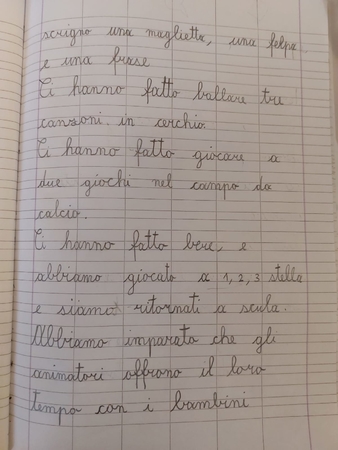 scrigno una maglietta, una felpa
e una frase
Ci hanno fatto ballare tre
canzoni in cerchio.
Ci hanno fatto giocare a
due giochi nel campo da
calcio.
Ci hanno fatto bere, e
abbiamo giocato a 1, 2, 3 stella
e siamo ritornati a scula.
Abbiamo imparato che gli
animatori offrono il loro
tempo con i bambini